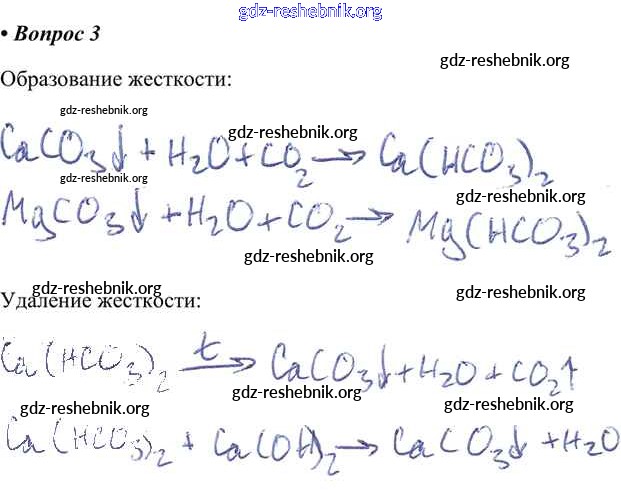 gdz-reshebnik.org
• Вопрос 3
gdz-reshebnik.org
Образование жесткости:
gdz-reshebnik.org
gdz-reshebnik.org
CaCO3↓ + H2O + CO2 → Ca(HCO3)2
gdz-reshebnik.org
gdz-reshebnik.org
MgCO3↓ + H2O + CO2 → Mg(HCO3)2
gdz-reshebnik.org
gdz-reshebnik.org
gdz-reshebnik.org
Удаление жесткости:
Ca(HCO3)2 t→ CaCO3↓ + H2O + CO2↑
gdz-reshebnik.org
gdz-reshebnik.org
gdz-reshebnik.org
Ca(HCO3)2 + Ca(OH)2 → CaCO3↓ + H2O